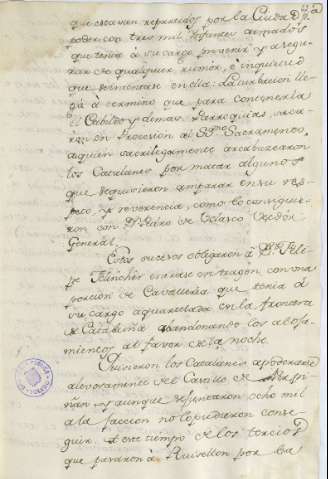 que estavan repartidos por la Ciudad, y a
poder con tres mil Infantes armados
que tenia à su cargo prevenir y asegu-
rar de qualquier rumor, è inquietud
que fomentase en ella. La turbacion lle-
gò à termino que para contenerla
el Cabildo y demas Parroquias, saca-
ron en Procesion al SSmo. Sacramento,
aquien sacrilegamente arcabucearon
los Catalanes por matar algunos
que se quisieron amparar en su res-
peto, y reverencia, como lo consiguie-
ron con Dn. Pedro de Velasco Vehedor
General.
Estos sucesos obligaron à Dn. Feli-
pe Filincher entrase en Aragon con una
porcion de Cavalleria que tenia à
su cargo aquartelada en la frontera
de Cataluña abandonando los aloja-
mientos al favor de la noche.
Quisieron los Catalanes apoderarse
alevosamente del Castillo de Perpi-
ñan y aunque se juntaron ocho mil
a la faccion no lo pudieron conse-
guir. A este tiempo de los tercios
que pasaron à Ruisellon por la